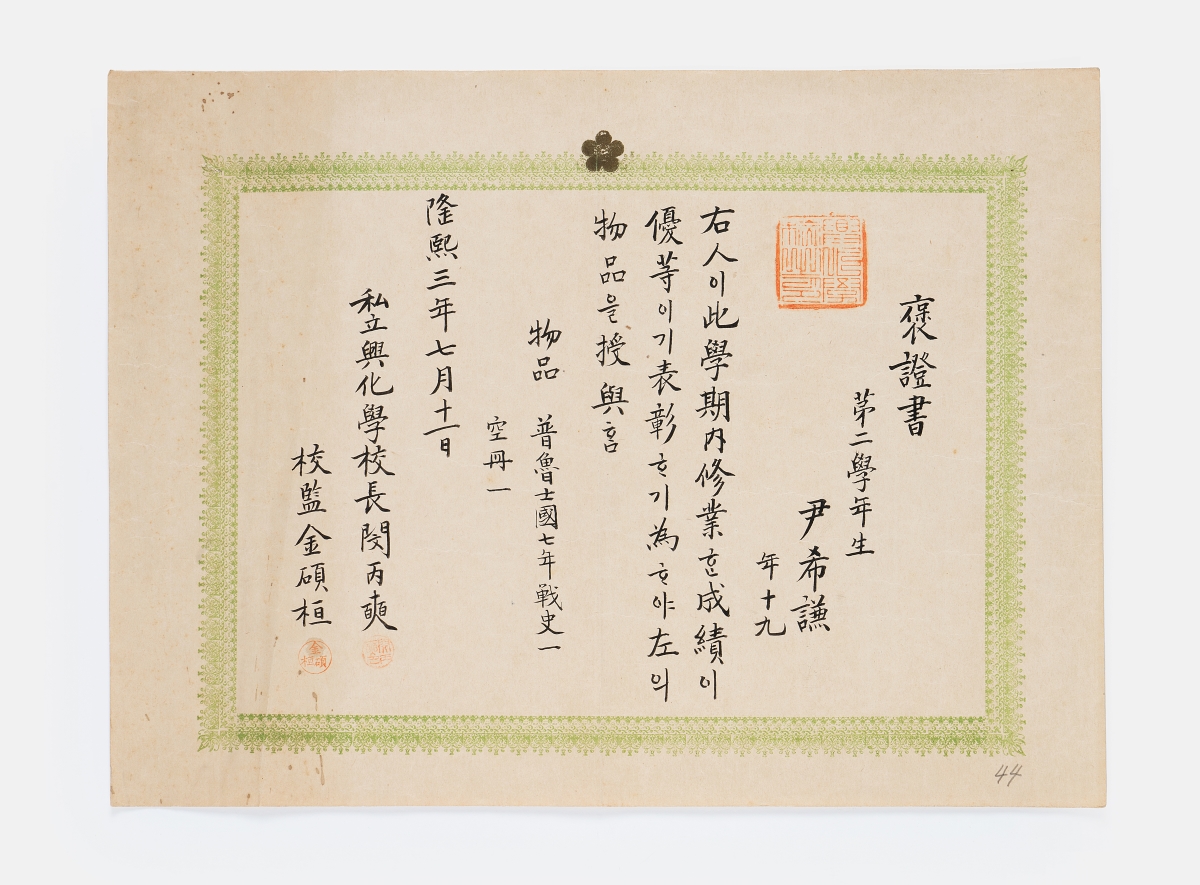 褒證書
第二學年生
尹希謙
年十九
右人이此學期内修業ᄒᆞᆫ成績이
優等이기表彰ᄒᆞ기為ᄒᆞ야左의
物品을授與ᄒᆞᆷ
物品 普魯士國七年戦史一
空冊一
隆熙三年七月十一日
私立興化學校長閔丙奭
校監金碩桓
金碩桓
44